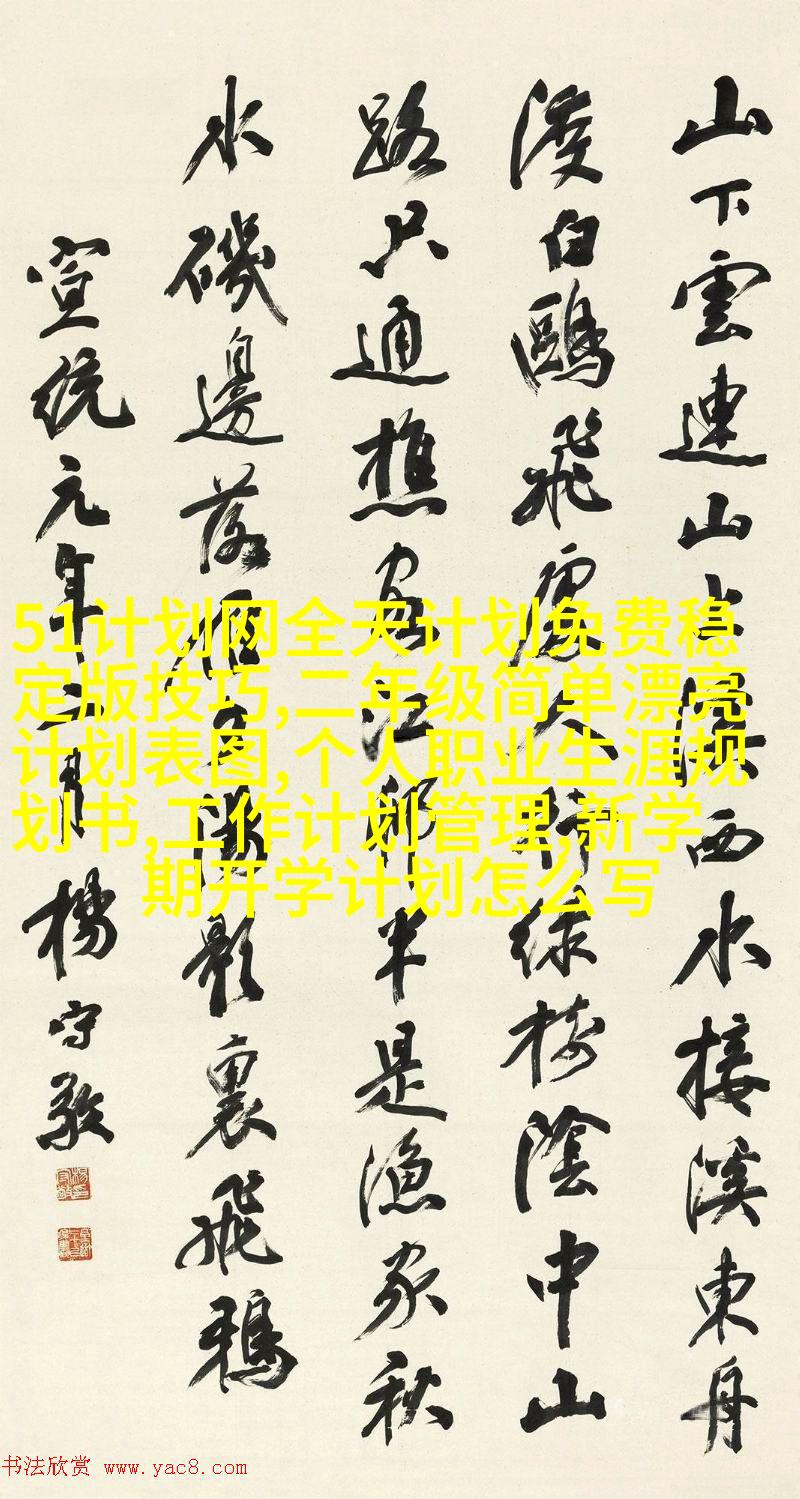 山下雲連山上溪西水接溪東舟
渡白鷗飛處人行綠樹陰中山
路只通樵客江邨半是漁家秋
水磯邊落雁夕陽影裏飛鴉
宣統元年二月楊守敬
51计划网全天计划免费稳
定版技巧,二年级简单漂亮
计划表图,个人职业生涯规
划书,工作计划管理,新学
期开学计划怎么写
书法欣赏 www.yac8.com